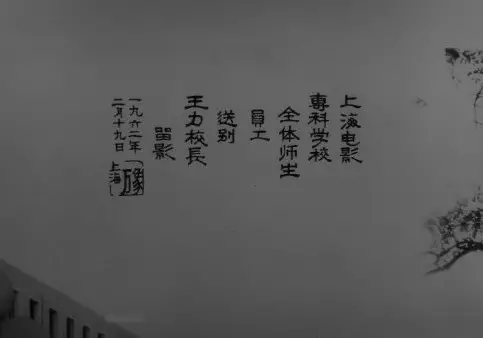 上海电影
專科学校
全体师生
員工
送别
王力校長
留影
一九六二年
二月十九日
上海